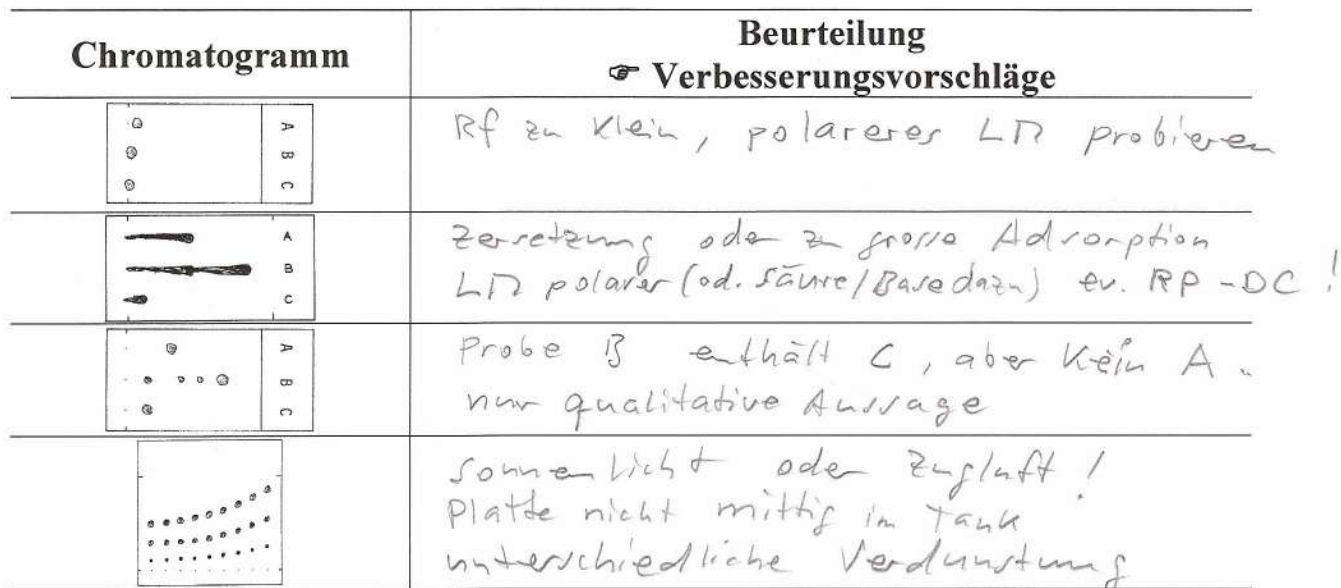 Chromatogramm
Beurteilung
☞ Verbesserungsvorschläge
A
B
C
Rf zu klein, polareres LM probieren
A
B
C
Zersetzung oder zu grosse Adsorption
LM polarer (od. Säure/Base dazu) ev. RP-DC!
A
B
C
Probe B enthält C, aber kein A.
nur qualitative Aussage
Sonnenlicht oder Zugluft!
Platte nicht mittig im Tank
unterschiedliche Verdunstung